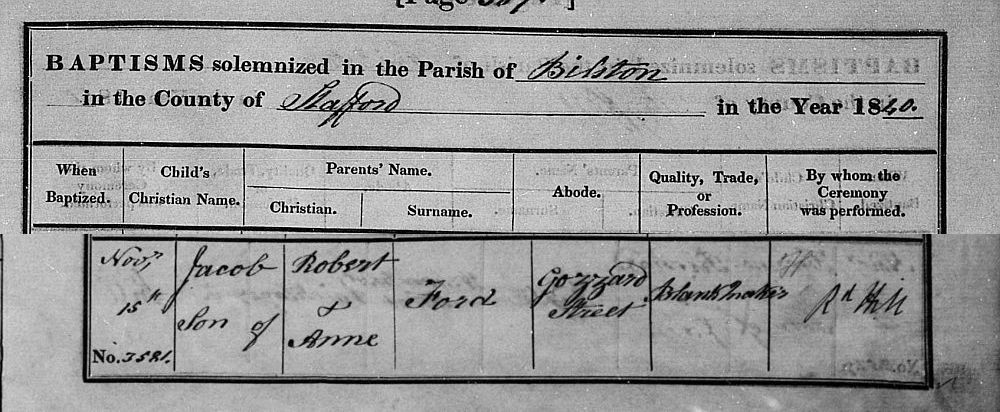 [Page 387.]
BAPTISMS solemnized in the Parish of Bilston
in the County of Stafford in the Year 1840.
When Baptized. Child's Christian Name. Parents' Name. Christian. Surname. Abode. Quality, Trade, or Profession. By whom the Ceremony was performed.
Novr 15th No. 3521. Jacob Son of Robert & Anne Ford Gozzard Street Blank Maker Rd Hill